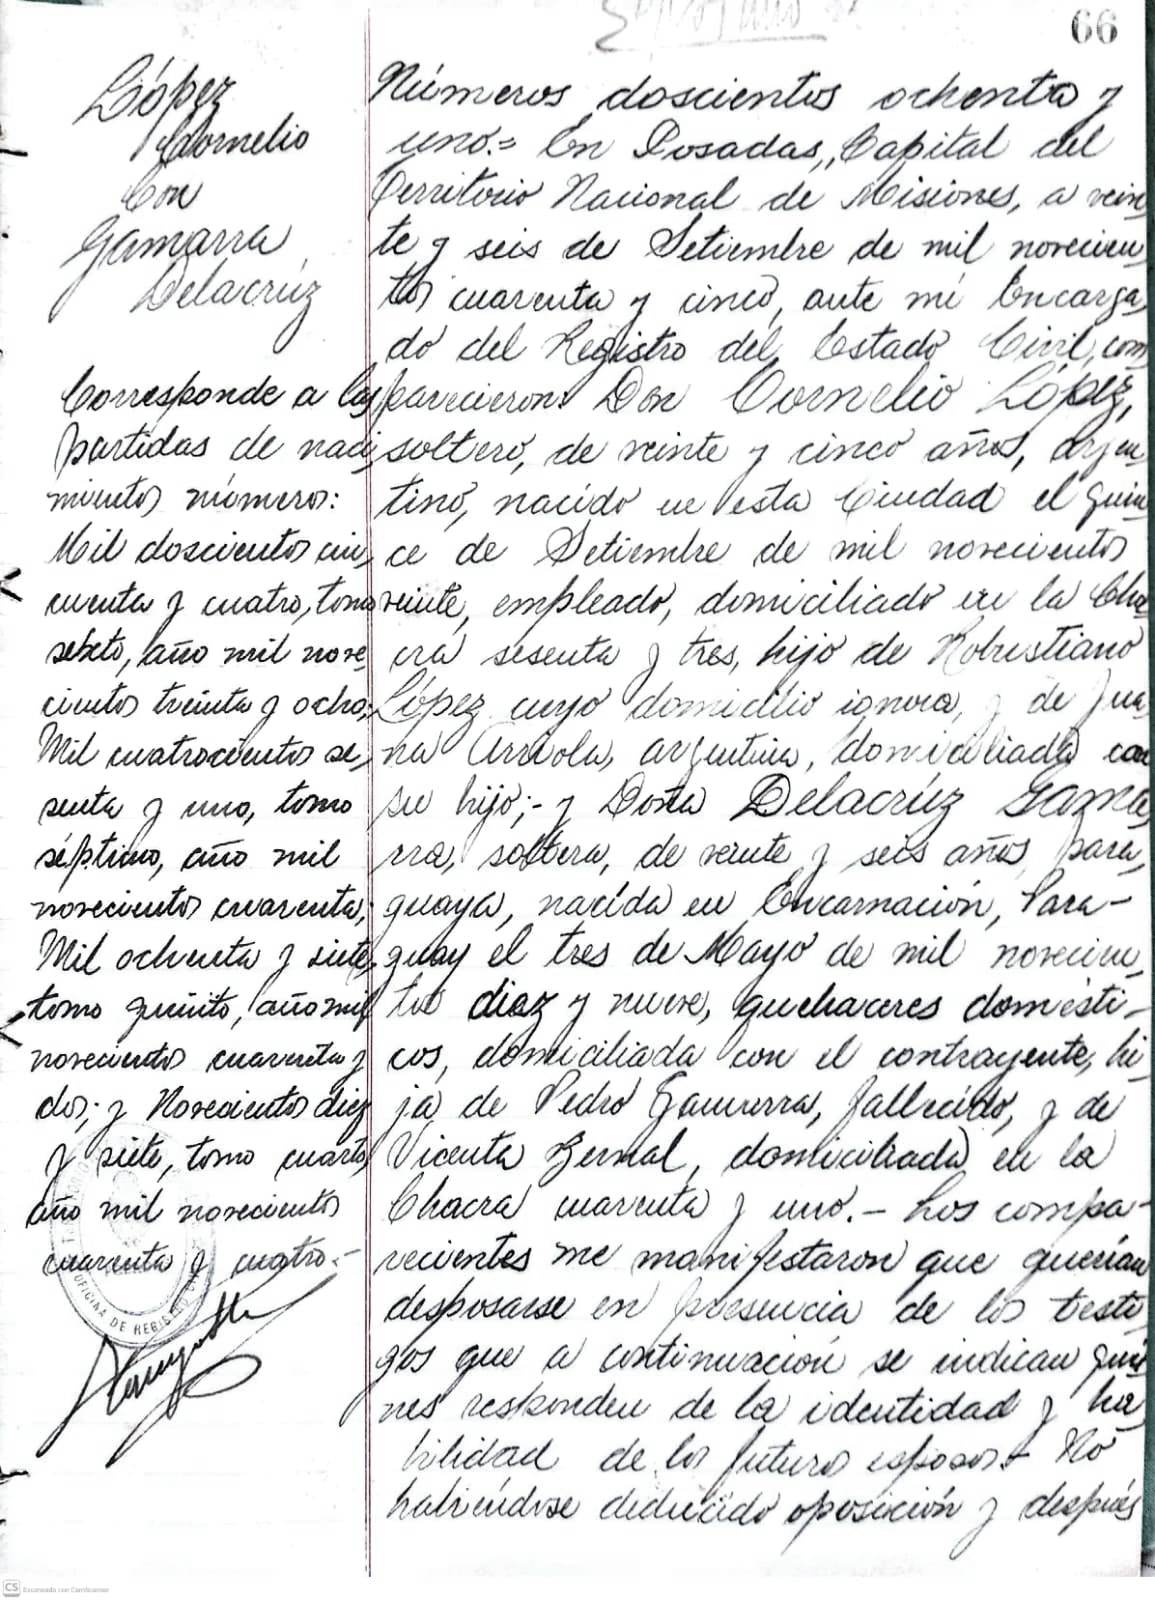 66
López
Cornelio
Con
Gamarra
Delacrúz
Corresponde a las
partidas de naci-
mientos números:
Mil doscientos cin-
cuenta y cuatro, tomo
sexto, año mil nove-
cientos treinta y ocho;
Mil cuatrocientos se-
senta y uno, tomo
séptimo, año mil
novecientos cuarenta;
Mil ochenta y siete,
tomo quinto, año mil
novecientos cuarenta y
dos; y Novecientos diez
y siete, tomo cuarto,
año mil novecientos
cuarenta y cuatro.-
OFICINA DE REGISTRO
Números doscientos ochenta y
uno.= En Posadas, Capital del
Territorio Nacional de Misiones, a vein-
te y seis de Setiembre de mil novecien-
tos cuarenta y cinco, ante mí Encarga-
do del Registro del Estado Civil, com-
parecieron: Don Cornelio López,
soltero, de veinte y cinco años, argen-
tino, nacido en esta Ciudad el quin-
ce de Setiembre de mil novecientos
veinte, empleado, domiciliado en la Cha-
cra sesenta y tres, hijo de Robustiano
López cuyo domicilio ignora, y de Jua-
na Arriola, argentina, domiciliada con
su hijo;- y Doña Delacrúz Gama-
rra, soltera, de veinte y seis años, para-
guaya, nacida en Encarnación, Para-
guay el tres de Mayo de mil novecien-
tos diez y nueve, quehaceres domésti-
cos, domiciliada con el contrayente, hi-
ja de Pedro Gamarra, fallecido, y de
Vicenta Bernal, domiciliada en la
Chacra cuarenta y uno.- Los compa-
recientes me manifestaron que querían
desposarse en presencia de los testi-
gos que a continuación se indican quie-
nes responden de la identidad y ha-
bilidad de los futuros esposos.- No
habiéndose deducido oposición y después
CS Escaneado con CamScanner